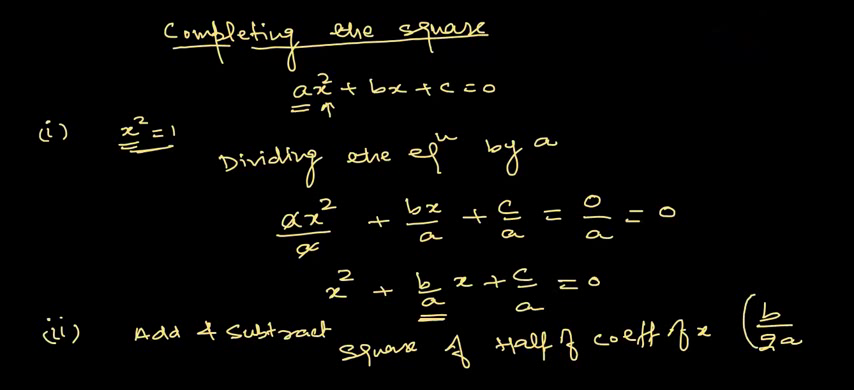 Completing the square
ax² + bx + c = 0
(i) x² = 1
Dividing the eqⁿ by a
ax²/a + bx/a + c/a = 0/a = 0
x² + b/a x + c/a = 0
(ii) Add & Subtract square of Half of coeff of x (b/2a